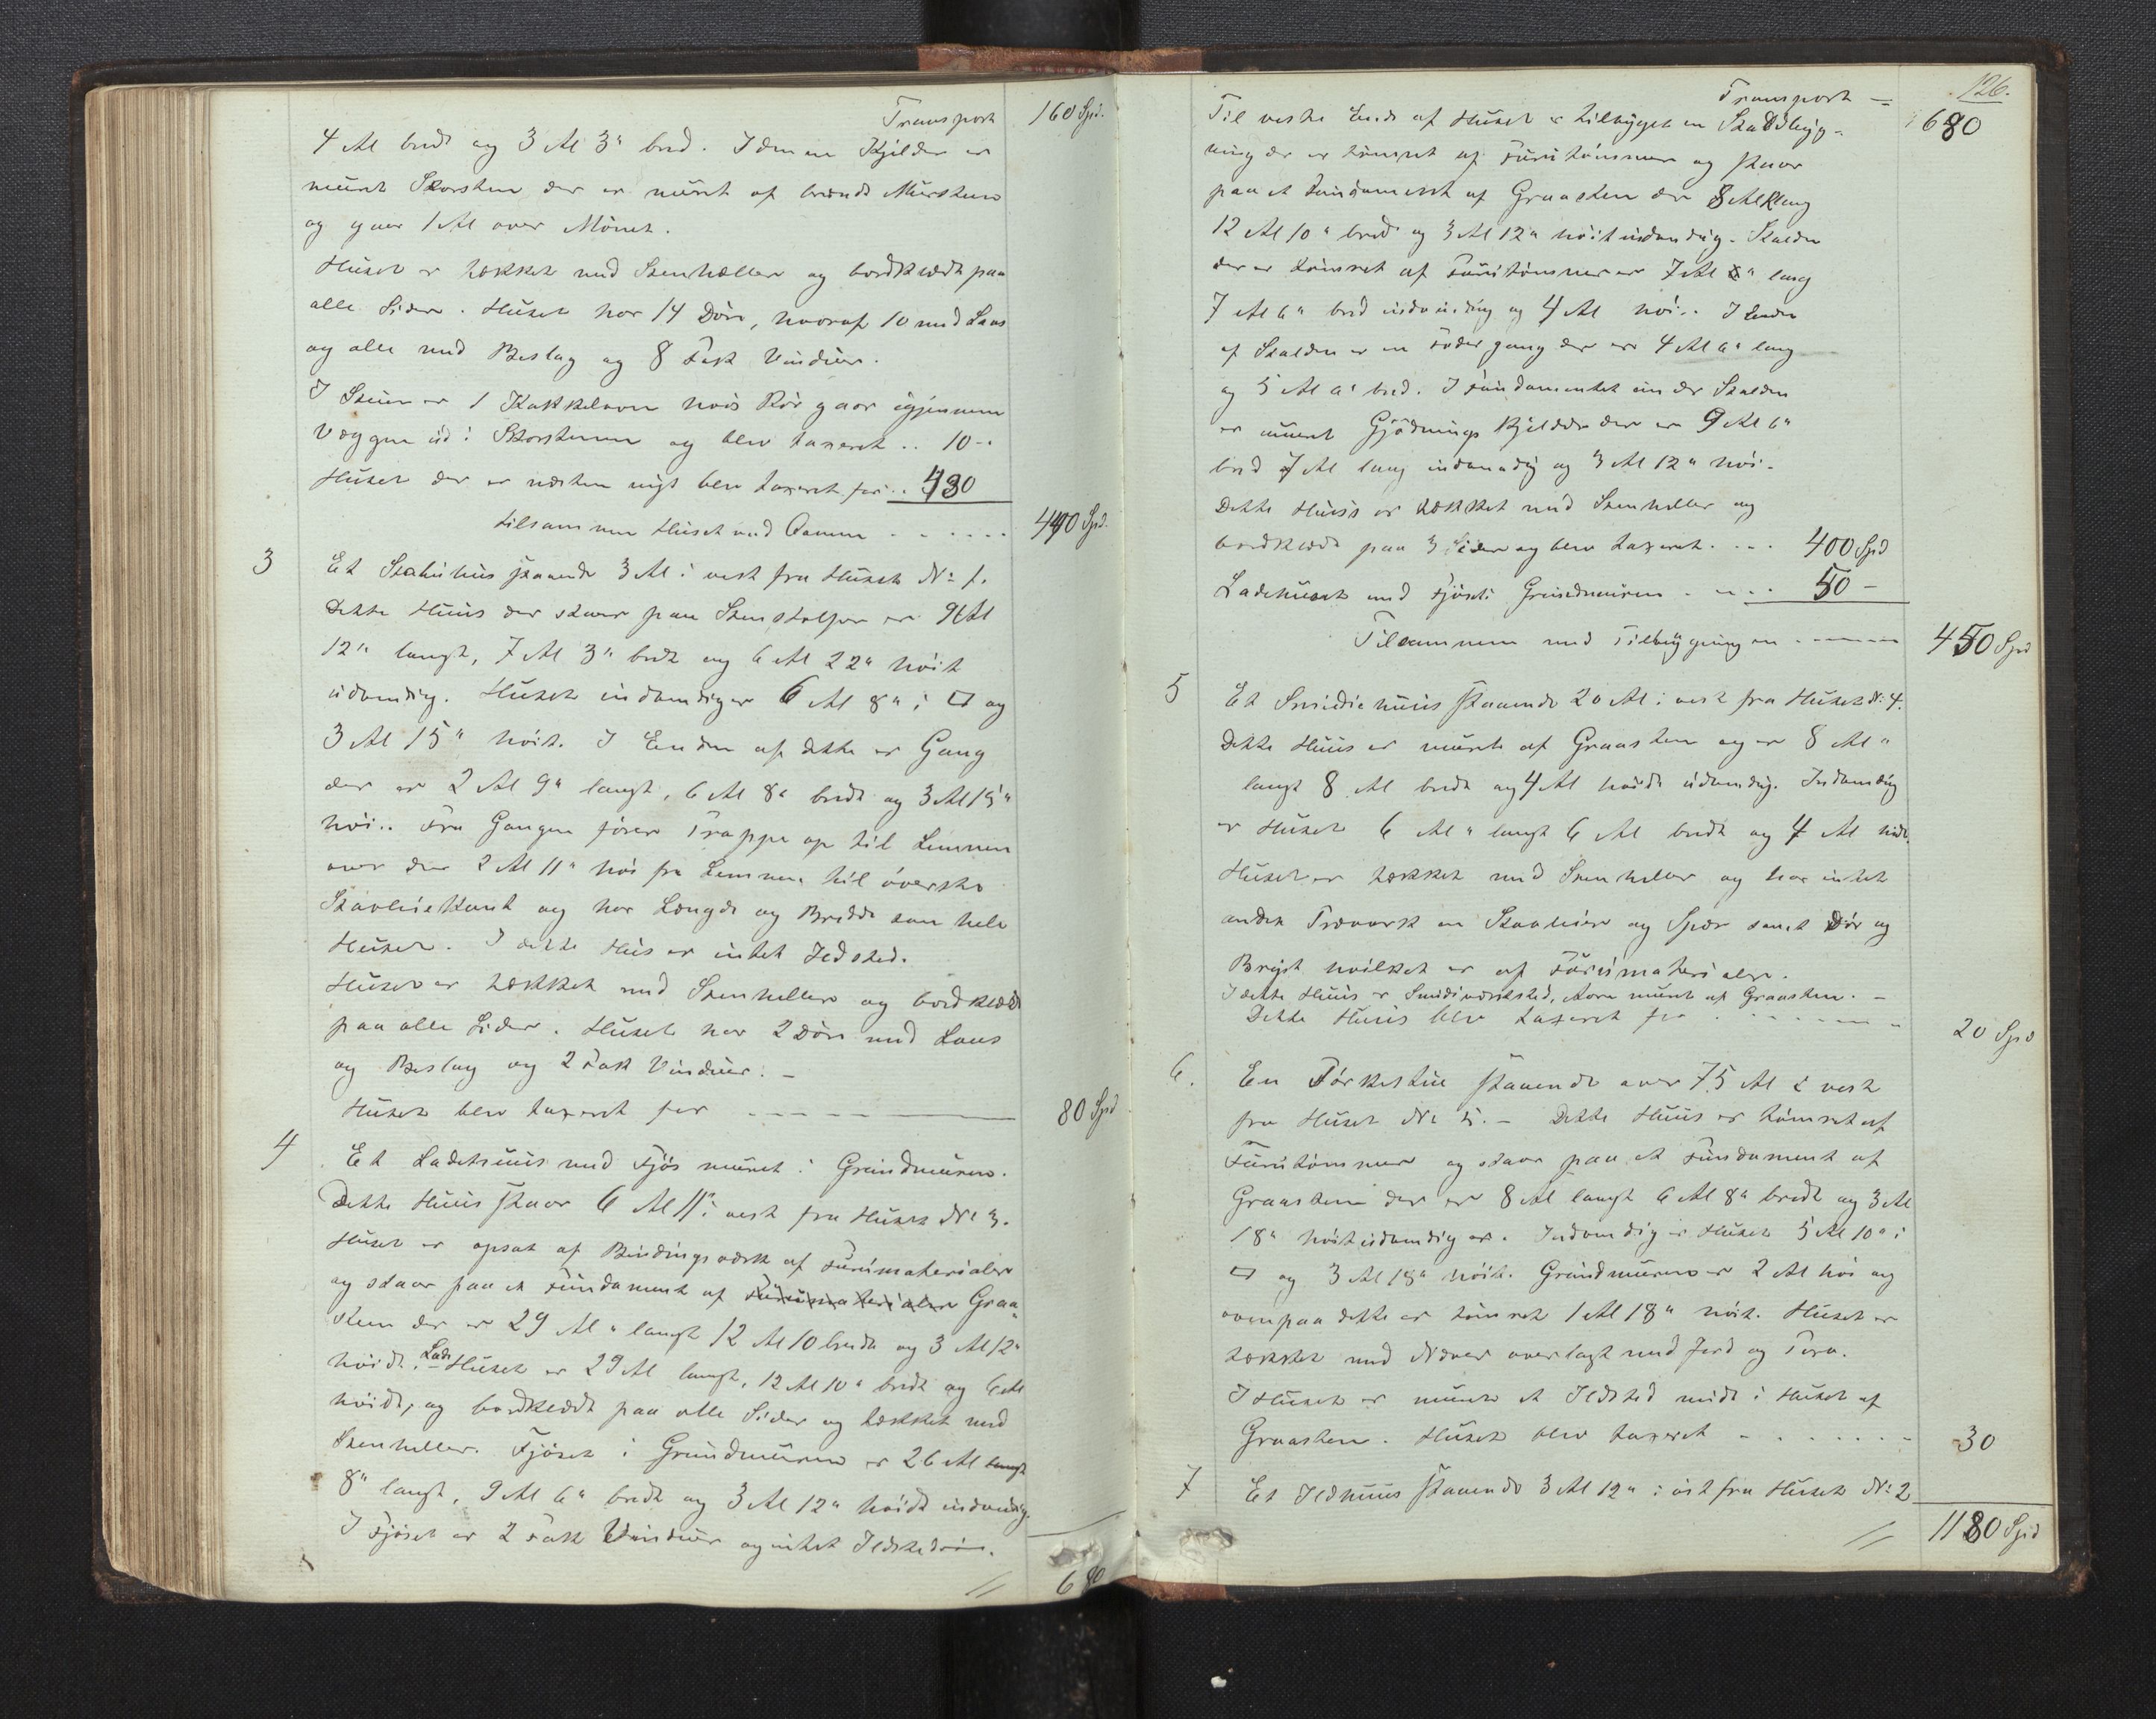 Transport 160 Spd.
4 Al bredt og 3 Al 3" bred. I denne Kjelder er
muret Skorsten der er muret af brændt Mursteen
og gaar 1 Al over Mönet.
Huset er tækket med Steenheller og bordklædt paa
alle Sider. Huset har 14 Döre, hvoraf 10 med Laas
og alle med Beslag og 8 Fak Vinduer.
I Stuen er 1 Kakkelovn hvis Rör gaar igjennem
Væggen ud i Skorstenen og blev taxeret .. 10 -
Huset der er næsten nyt blev taxeret for .. 430
tilsammen Huset med Ovnen . . . . . . 440 Spd.
3 Et Stabuhuus staaende 3 Al i vest fra Huset No 1.
Dette Huus der staar paa Steenstolper er 9 Al
12" langt, 7 Al 3" bredt og 6 Al 22" höit
udvendig. Huset indvendig er 6 Al 8" i □ og
3 Al 15" höit. I Enden af dette er Gang
der er 2 Al 9" langt, 6 Al 8" bredt og 3 Al 15"
höi.. Fra Gangen förer Trappe op til Lemmen
over der 2 Al 11" höi fra Lemmen til överste
Stavliekant og har Længde og Bredde som hele
Huset. I dette Hus er intet Ildsted.
Huset er tækket med Steenheller og bordklædt
paa alle Sider. Huset har 2 Döre med Laas
og Beslag og 2 Fak Vinduer. -
Huset blev taxeret for - - - - 80 Spd
4 Et Ladehuus med Fjös muret i Grundmuren.
Dette Huus staar 6 Al 11" i vest fra Huset No 3.
Huset er opsat af Bindingsværk af Furumaterialer
og staar paa et Fundament af Furumaterialer Graa-
steen der er 29 Al " langt 12 Al 10 bredt og 3 Al 12"
höidt. Lade Huset er 29 Al langt, 12 Al 10" bredt og 6 Al
höidt, og bordklædt paa alle Sider og tækket med
Steenheller. Fjöset i Grundmuren er 26 Al langt
8" langt, 9 Al 6" bredt og 3 Al 12" höidt indvendig.
I Fjöset er 2 Fak Vinduer og intet Ildsted.
// 680
126.
Transport - 680
Til vestre Ende af Huset er tilbygget en Staldbyg-
ning der er tömret af Furutömmer og staar
paa et Fundament af Graasten der 8 Al lang
12 Al 10" bred og 3 Al 12" höit indvendig. Stalden
der er tömret af Furutömmer er 7 Al " lang
7 Al 6" bred indvendig og 4 Al höi.. I Enden
af Stalden er en Fodergang der er 4 Al 6" lang
og 5 Al 6" bred. I Fundamentet under Stalden
er muret Gjödningskjelder der er 9 Al 6"
bred 7 Al lang indvendig og 3 Al 12" höi.
Dette Huus er tækket med Steenheller og
bordklædt paa 3 Sider og blev taxeret. . . . 400 Spd
Ladehuset med Fjöset i Grundmuren - - . . . 50 -
Tilsammen med Tilbygningen - - - - 450 Spd
5 Et Smidiehuus staaende 20 Al i vest fra Huset No 4.
Dette Huus er muret af Graasten og er 8 Al "
langt 8 Al bredt og 4 Al höidt udvendig. Indvendig
er Huset 6 Al " langt 6 Al bredt og 4 Al höidt.
Huset er tækket med Steenheller og har intet
andet Træværk en Stavlier og Spær samt Dör og
Bryst hvilket er af Furumaterialer.
I dette Huus er Smidieværksted, Avre muret af Graasten. -
Dette Huus blev taxeret for . - - - - 20 Spd
6. En Törkestue staaende over 75 Al i vest
fra Huset No 5. - Dette Huus er tömret af
Furutömmer og staar paa et Fundament af
Graasten der er 8 Al langt 6 Al 8" bredt og 3 Al
18" höit udvendig er. Indvendig er Huset 5 Al 10" i
□ og 3 Al 18" höit. Grundmuren er 2 Al höi og
ovenpaa dette er tömret 1 Al 18" höit. Huset er
tækket med Næver overlagt med Jord og Torv.
I Huset er muret et Ildsted midt i Huset af
Graasten. Huset blev taxeret - . . . . . - 30
7 Et Ildhuus staaende 3 Al 12" i öst fra Huset No 2
// 1180 Spd